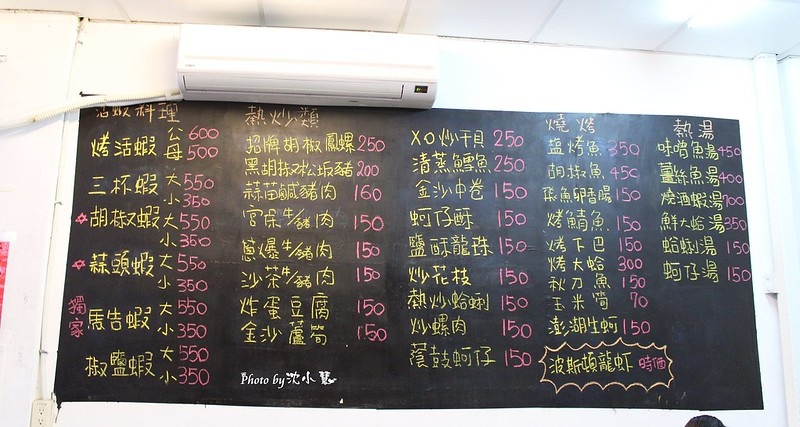 活蝦料理
烤活蝦 公 600
母 500
三杯蝦 大 550
小 350
胡椒蝦 大 550
小 350
蒜頭蝦 大 550
小 350
獨家
馬告蝦 大 550
小 350
椒鹽蝦 大 550
小 350
熱炒類
招牌胡椒鳳螺 250
黑胡椒松坂豬 200
蒜苗鹹豬肉 160
宮保牛/豬肉 150
蔥爆牛/豬肉 150
沙茶牛/豬肉 150
炸蛋豆腐 150
金沙蘆筍 150
XO炒干貝 250
清蒸鱈魚 250
金沙中卷 150
蚵仔酥 150
鹽酥龍珠 150
炒花枝 150
熱炒蛤蜊 150
炒螺肉 150
蔭鼓蚵仔 150
燒烤
鹽烤魚 350
胡椒魚 450
飛魚卵香腸 150
烤鯖魚 150
烤下巴 150
烤大蛤 300
秋刀魚 150
玉米筍 70
澎湖生蚵 150
波斯頓龍虾 時価
熱湯
味噌魚湯 450
薑絲魚湯 400
燒酒蝦湯 700
鮮大蛤湯 350
蛤蜊湯 150
蚵仔湯 150
Photo by 沈小慧